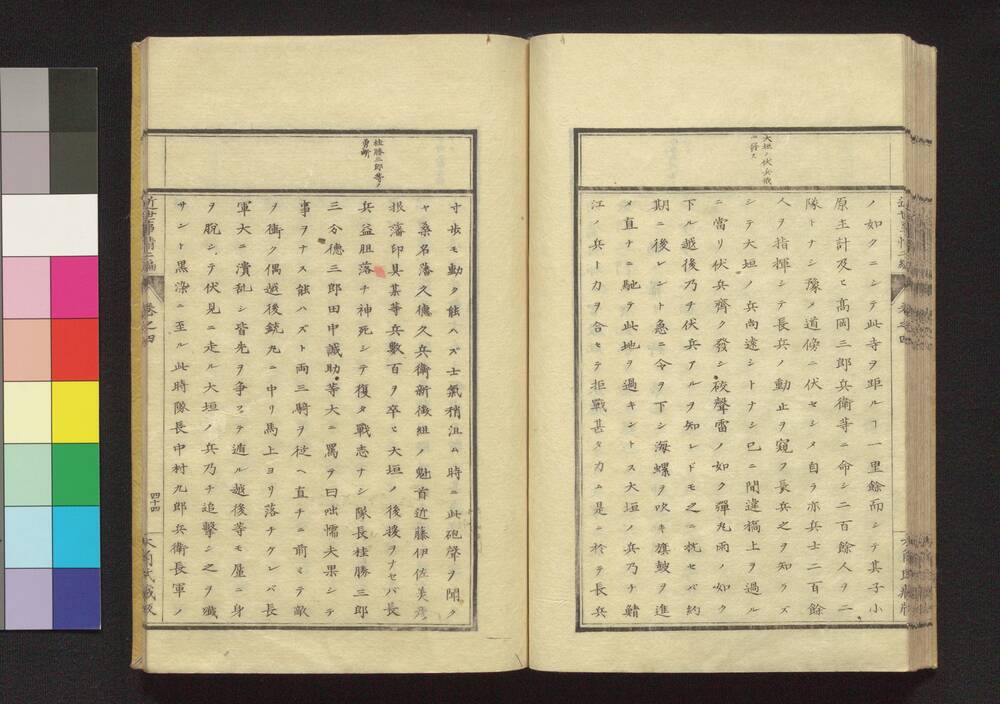 大垣ノ伏兵戦
ノ如クニシテ此寺ヲ距ルヿ一里餘而シテ其子小
原主計及ヒ髙岡三郎兵衛等ニ命シ二百餘人ヲ二
隊トナシ豫メ道傍ニ伏セシメ自ラ亦兵士二百餘
人ヲ指揮シテ長兵ノ動止ヲ窺フ長兵之ヲ知ラズ
シテ大垣ノ兵尚遠シトナシ已ニ間違橋上ヲ過ル
ニ當リ伏兵齊ク發シ砲聲雷ノ如ク彈丸雨ノ如ク
下ル越後乃チ伏兵アルヲ知レドモ之ニ抗セバ約
期ニ後レント急ニ令ヲ下シ海螺ヲ吹キ旗皷ヲ進
メ直チニ馳テ此地ヲ過キントス大垣ノ兵乃チ鯖
江ノ兵ト力ヲ合セテ拒戰甚タカム是ニ於テ長兵
近世事情二編
卷之四
桂勝三郎等ノ
勇斷
寸歩モ動ク能ハズ士氣稍沮ム時ニ此砲聲ヲ聞ク
ヤ桑名藩久德久兵衛新徴組ノ魁首近藤伊佐美彦
根藩印具某等兵數百ヲ卒ヒ大垣ノ後援ヲナセバ長
兵益胆落チ神死シテ復タ戰志ナシ隊長桂勝三郎
三分德三郎田中誠助等大ニ罵テ曰咄懦夫果シテ
事ヲナス能ハズト両三騎ヲ従ヘ直チニ前ミテ敵
ヲ衝ク偶越後銃丸ニ中リ馬上ヨリ落チケレバ長
軍大ニ潰乱シ皆先ヲ争フテ遁ル越後等モ厪ニ身
ヲ脱シテ伏見ニ走ル大垣ノ兵乃チ追擊シ之ヲ殲
サント黒染ニ至ル此時隊長中村九郎兵衛長軍ノ
近世事情二編
卷之四
四十四